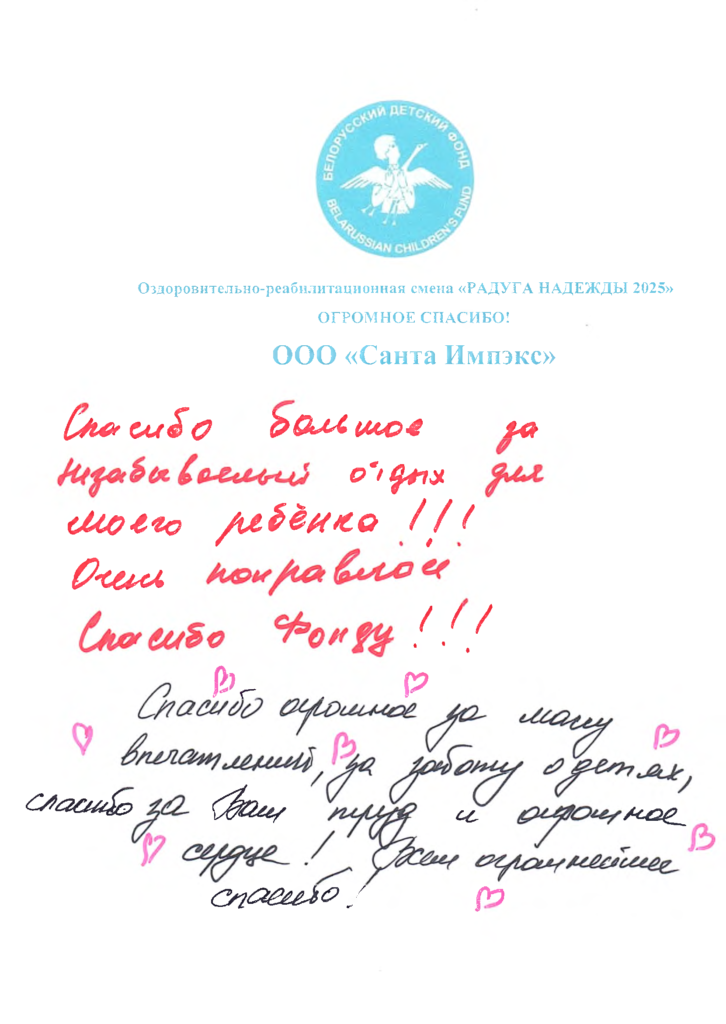 БЕЛОРУССКИЙ ДЕТСКИЙ ФОНД
BELARUSSIAN CHILDREN'S FUND
Оздоровительно-реабилитационная смена «РАДУГА НАДЕЖДЫ 2025»
ОГРОМНОЕ СПАСИБО!
ООО «Санта Импэкс»
Спасибо большое за
незабываемый отдых для
моего ребёнка!!!
Очень понравилось
Спасибо Фонду!!!
Спасибо огромное за массу
впечатлений, за заботу о детях,
спасибо за Ваш труд и огромное
сердце! Вам огромнейшее
спасибо!